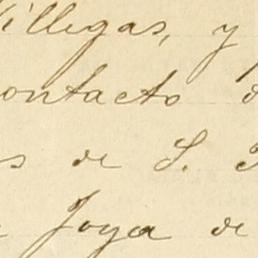 Villegas, y
contacto d
s de S.
Joya de